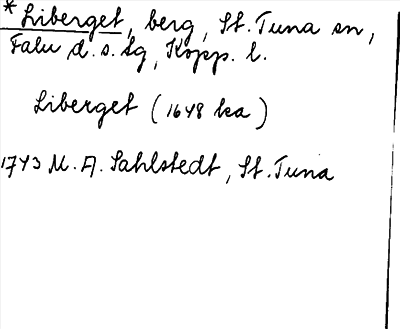 * Liberget, berg, St. Tuna sn,
Falu d. s. lg, Kopp. l.
Liberget (1648 lka)
1743 M. A. Sahlstedt, St. Tuna